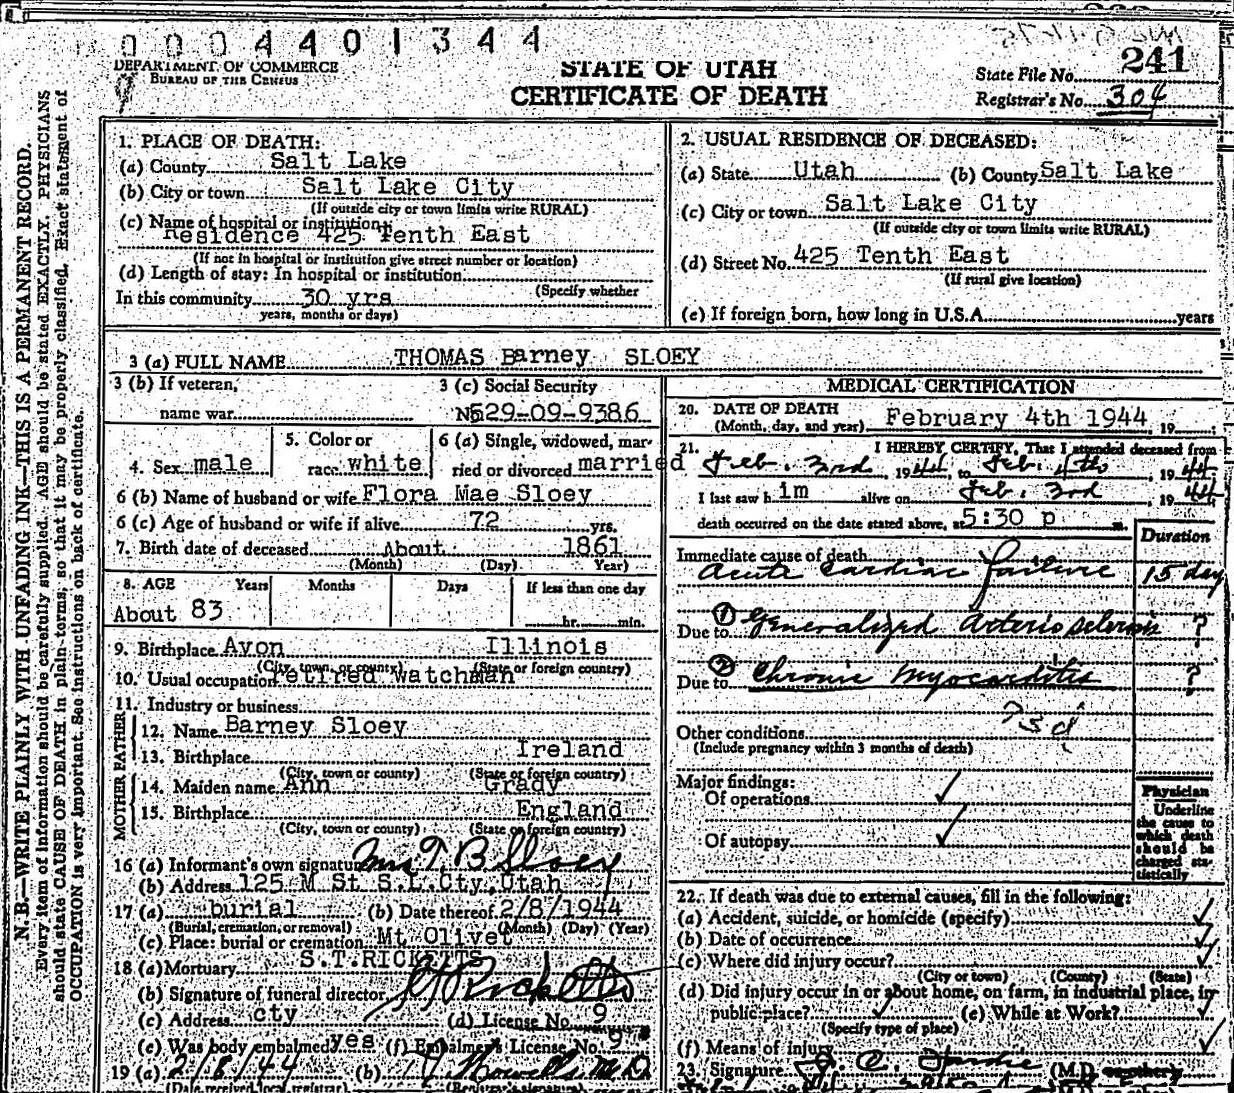 0004401344
DEPARTMENT OF COMMERCE
BUREAU OF THE CENSUS
STATE OF UTAH
CERTIFICATE OF DEATH
State File No. 241
Registrar's No. 304
N. B.—WRITE PLAINLY WITH UNFADING INK—THIS IS A PERMANENT RECORD.
Every item of information should be carefully supplied. AGE should be stated EXACTLY. PHYSICIANS
should state CAUSE OF DEATH in plain terms, so that it may be properly classified. Exact statement of
OCCUPATION is very important. See instructions on back of certificate.
1. PLACE OF DEATH:
(a) County Salt Lake
(b) City or town Salt Lake City
(If outside city or town limits write RURAL)
(c) Name of hospital or institution:
Residence 425 Tenth East
(If not in hospital or institution give street number or location)
(d) Length of stay: In hospital or institution
(Specify whether
In this community 30 yrs
years, months or days)
2. USUAL RESIDENCE OF DECEASED:
(a) State Utah (b) County Salt Lake
(c) City or town Salt Lake City
(If outside city or town limits write RURAL)
(d) Street No. 425 Tenth East
(If rural give location)
(e) If foreign born, how long in U.S.A. years
3 (a) FULL NAME THOMAS Barney SLOEY
3 (b) If veteran,
name war
3 (c) Social Security
No. 529-09-9386
4. Sex male
5. Color or
race white
6 (a) Single, widowed, mar-
ried or divorced married
6 (b) Name of husband or wife Flora Mae Sloey
6 (c) Age of husband or wife if alive 72 yrs.
7. Birth date of deceased About 1861
(Month) (Day) Year)
8. AGE Years Months Days If less than one day
About 83 hr. min.
9. Birthplace Avon Illinois
(City, town, or county) (State or foreign country)
10. Usual occupation retired Watchman
11. Industry or business
FATHER
12. Name Barney Sloey
13. Birthplace Ireland
(City, town or county) (State or foreign country)
MOTHER
14. Maiden name Ann Grady
15. Birthplace England
(City, town or county) (State or foreign country)
16 (a) Informant's own signature Mrs T B Sloey
(b) Address 125 M St S.L.Cty,Utah
17 (a) burial (b) Date thereof 2/8/1944
(Burial, cremation, or removal) (Month) (Day) (Year)
(c) Place: burial or cremation Mt Olivet
18 (a) Mortuary S.T.RICKETTS
(b) Signature of funeral director Ricketts
(c) Address cty (d) License No. 9
(e) Was body embalmed? yes (f) Embalmer's License No. 9
19 (a) 2/8/44 (b) M.D.
(Date received local registrar) (Registrar's signature)
MEDICAL CERTIFICATION
20. DATE OF DEATH
(Month, day, and year) February 4th 1944, 19
21. I HEREBY CERTIFY, That I attended deceased from
Feb. 3rd, 1944, to Feb. 4th, 1944.
I last saw h im alive on Feb. 3rd, 1944
death occurred on the date stated above, at 5:30 p m.
Duration
Immediate cause of death
Acute Cardiac failure 15 day
Due to 1 Generalized Arteriosclerosis ?
Due to 2 Chronic Myocarditis ?
Other conditions
(Include pregnancy within 3 months of death)
Major findings:
Of operations
Of autopsy
Physician
Underline
the cause to
which death
should be
charged sta-
tistically
22. If death was due to external causes, fill in the following:
(a) Accident, suicide, or homicide (specify)
(b) Date of occurrence
(c) Where did injury occur?
(City or town) (County) (State)
(d) Did injury occur in or about home, on farm, in industrial place, in
public place? (e) While at Work?
(Specify type of place)
(f) Means of injury
23. Signature (M.D. or other)